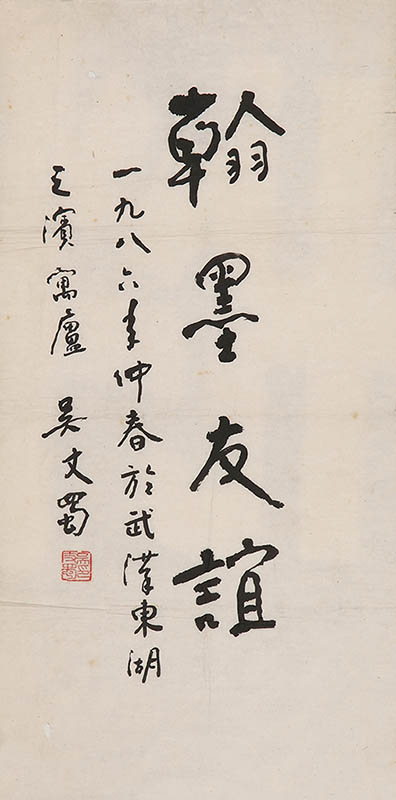 翰墨友誼
一九八六年仲春於武漢東湖
之濱寓廬 吴文蜀